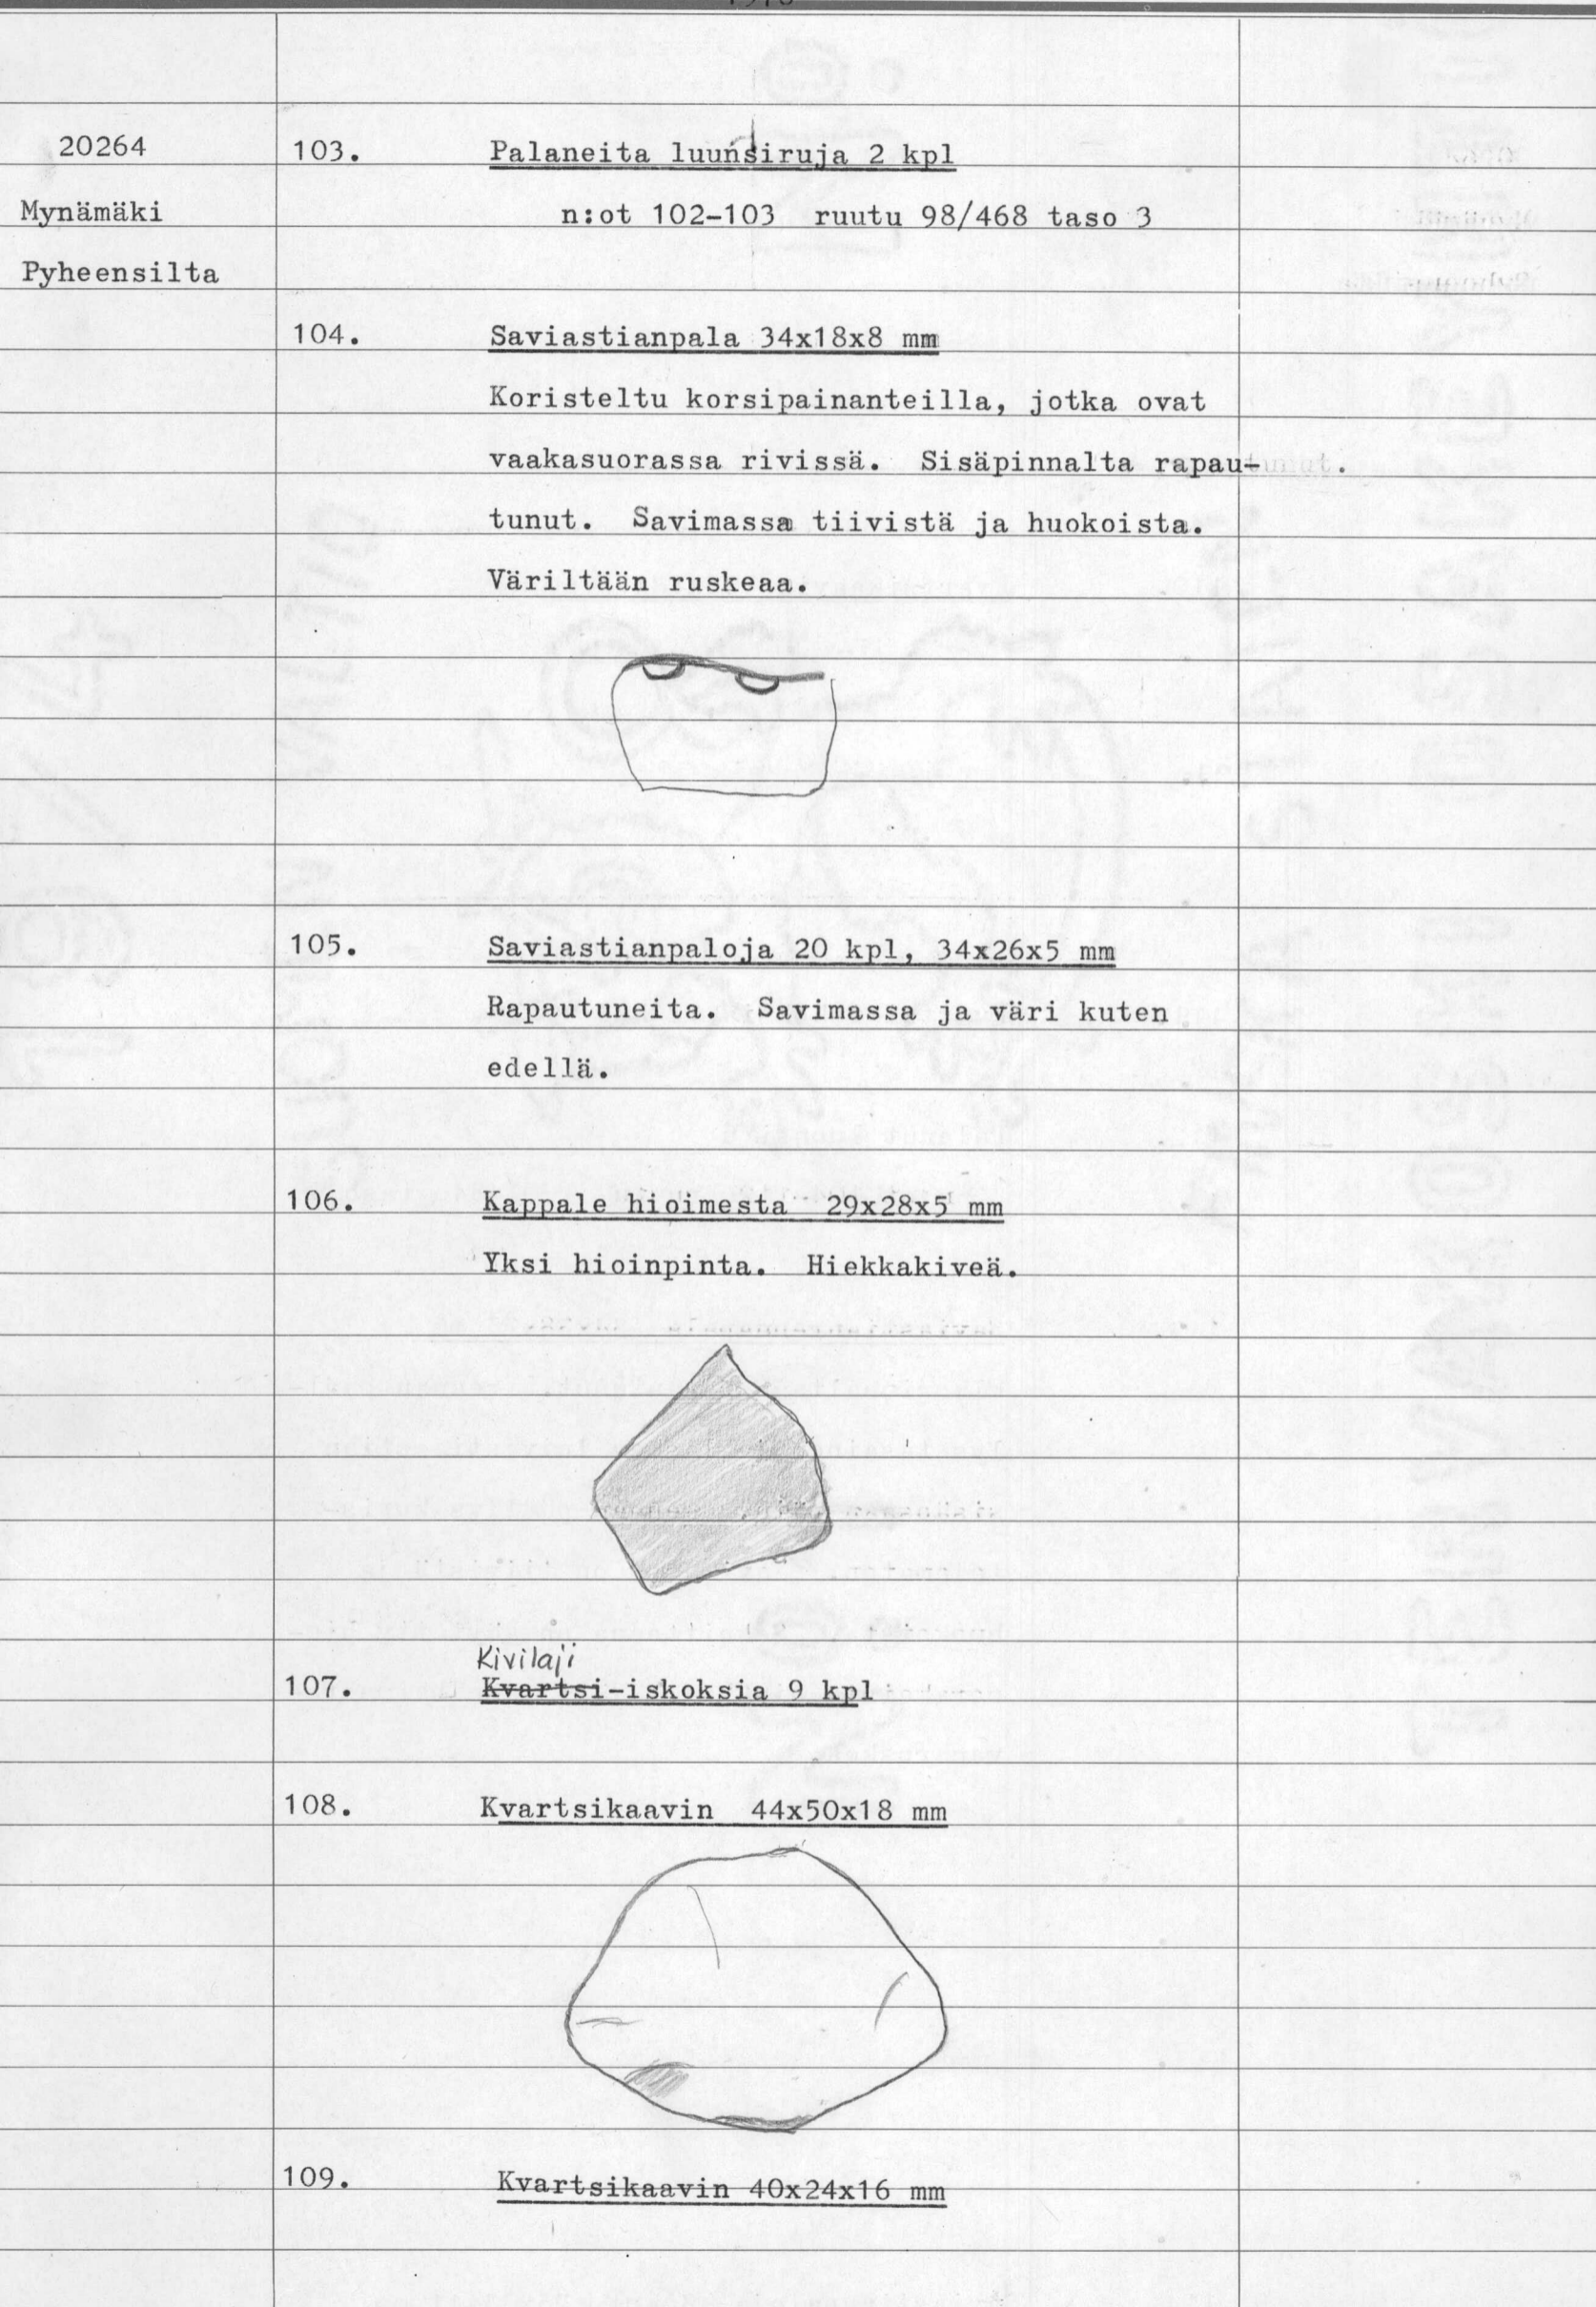 20264 103. Palaneita luunsiruja 2 kpl
Mynämäki n:ot 102-103 ruutu 98/468 taso 3
Pyheensilta
104. Saviastianpala 34x18x8 mm
Koristeltu korsipainanteilla, jotka ovat
vaakasuorassa rivissä. Sisäpinnalta rapau-
tunut. Savimassa tiivistä ja huokoista.
Väriltään ruskeaa.
105. Saviastianpaloja 20 kpl, 34x26x5 mm
Rapautuneita. Savimassa ja väri kuten
edellä.
106. Kappale hioimesta 29x28x5 mm
Yksi hioinpinta. Hiekkakiveä.
Kivilaji
107. Kvartsi-iskoksia 9 kpl
108. Kvartsikaavin 44x50x18 mm
109. Kvartsikaavin 40x24x16 mm